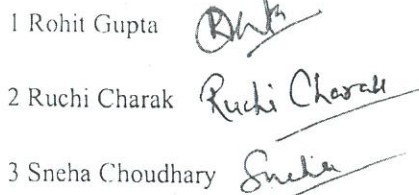 1 Rohit Gupta
2 Ruchi Charak Ruchi Charak
3 Sneha Choudhary Sneha